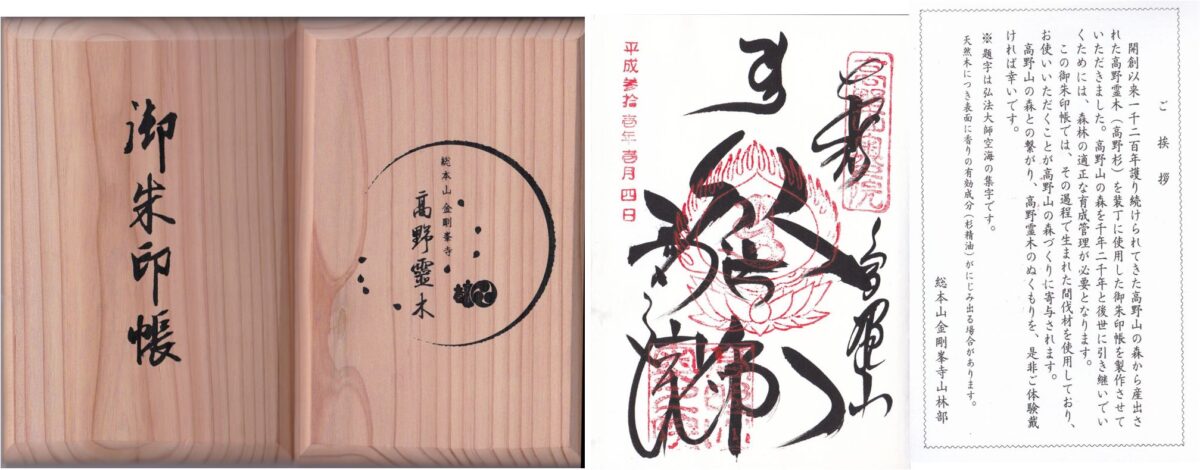 御朱印帳
総本山 金剛峯寺
高野霊木
平成参拾壱年壱月四日
奉
高野山
奥之院
ご挨拶
開創以来一千二百年護り続けられてきた高野山の森から産出さ
れた高野霊木（高野杉）を装丁に使用した御朱印帳を製作させて
いただきました。高野山の森を千年二千年と後世に引き継いでい
くためには、森林の適正な育成管理が必要となります。
この御朱印帳では、その過程で生まれた間伐材を使用しており、
お使いいただくことが高野山の森づくりに寄与されます。
高野山の森との繋がり、高野霊木のぬくもりを、是非ご体験戴
ければ幸いです。
※題字は弘法大師空海の集字です。
天然木につき表面に香りの有効成分（杉精油）がにじみ出る場合があります。
総本山金剛峯寺山林部